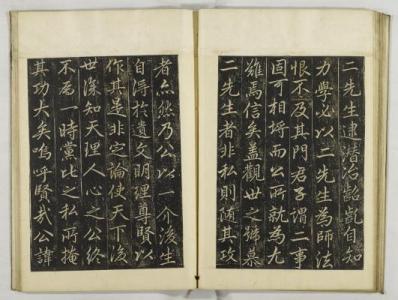 二先生逮潜冶齠齔自知
力學必以二先生為師法
恨不及其門君子謂二事
固可相埒而公所就為尤
難焉信矣蓋觀世之號慕
二先生者非私則隨其攻
者然乃公以一介後生
自得於遺文明理尊賢以
作其是非定論使天下後
世深知天理人心之公終
不為一時黨比之私所掩
其功大矣嗚呼賢哉公諱